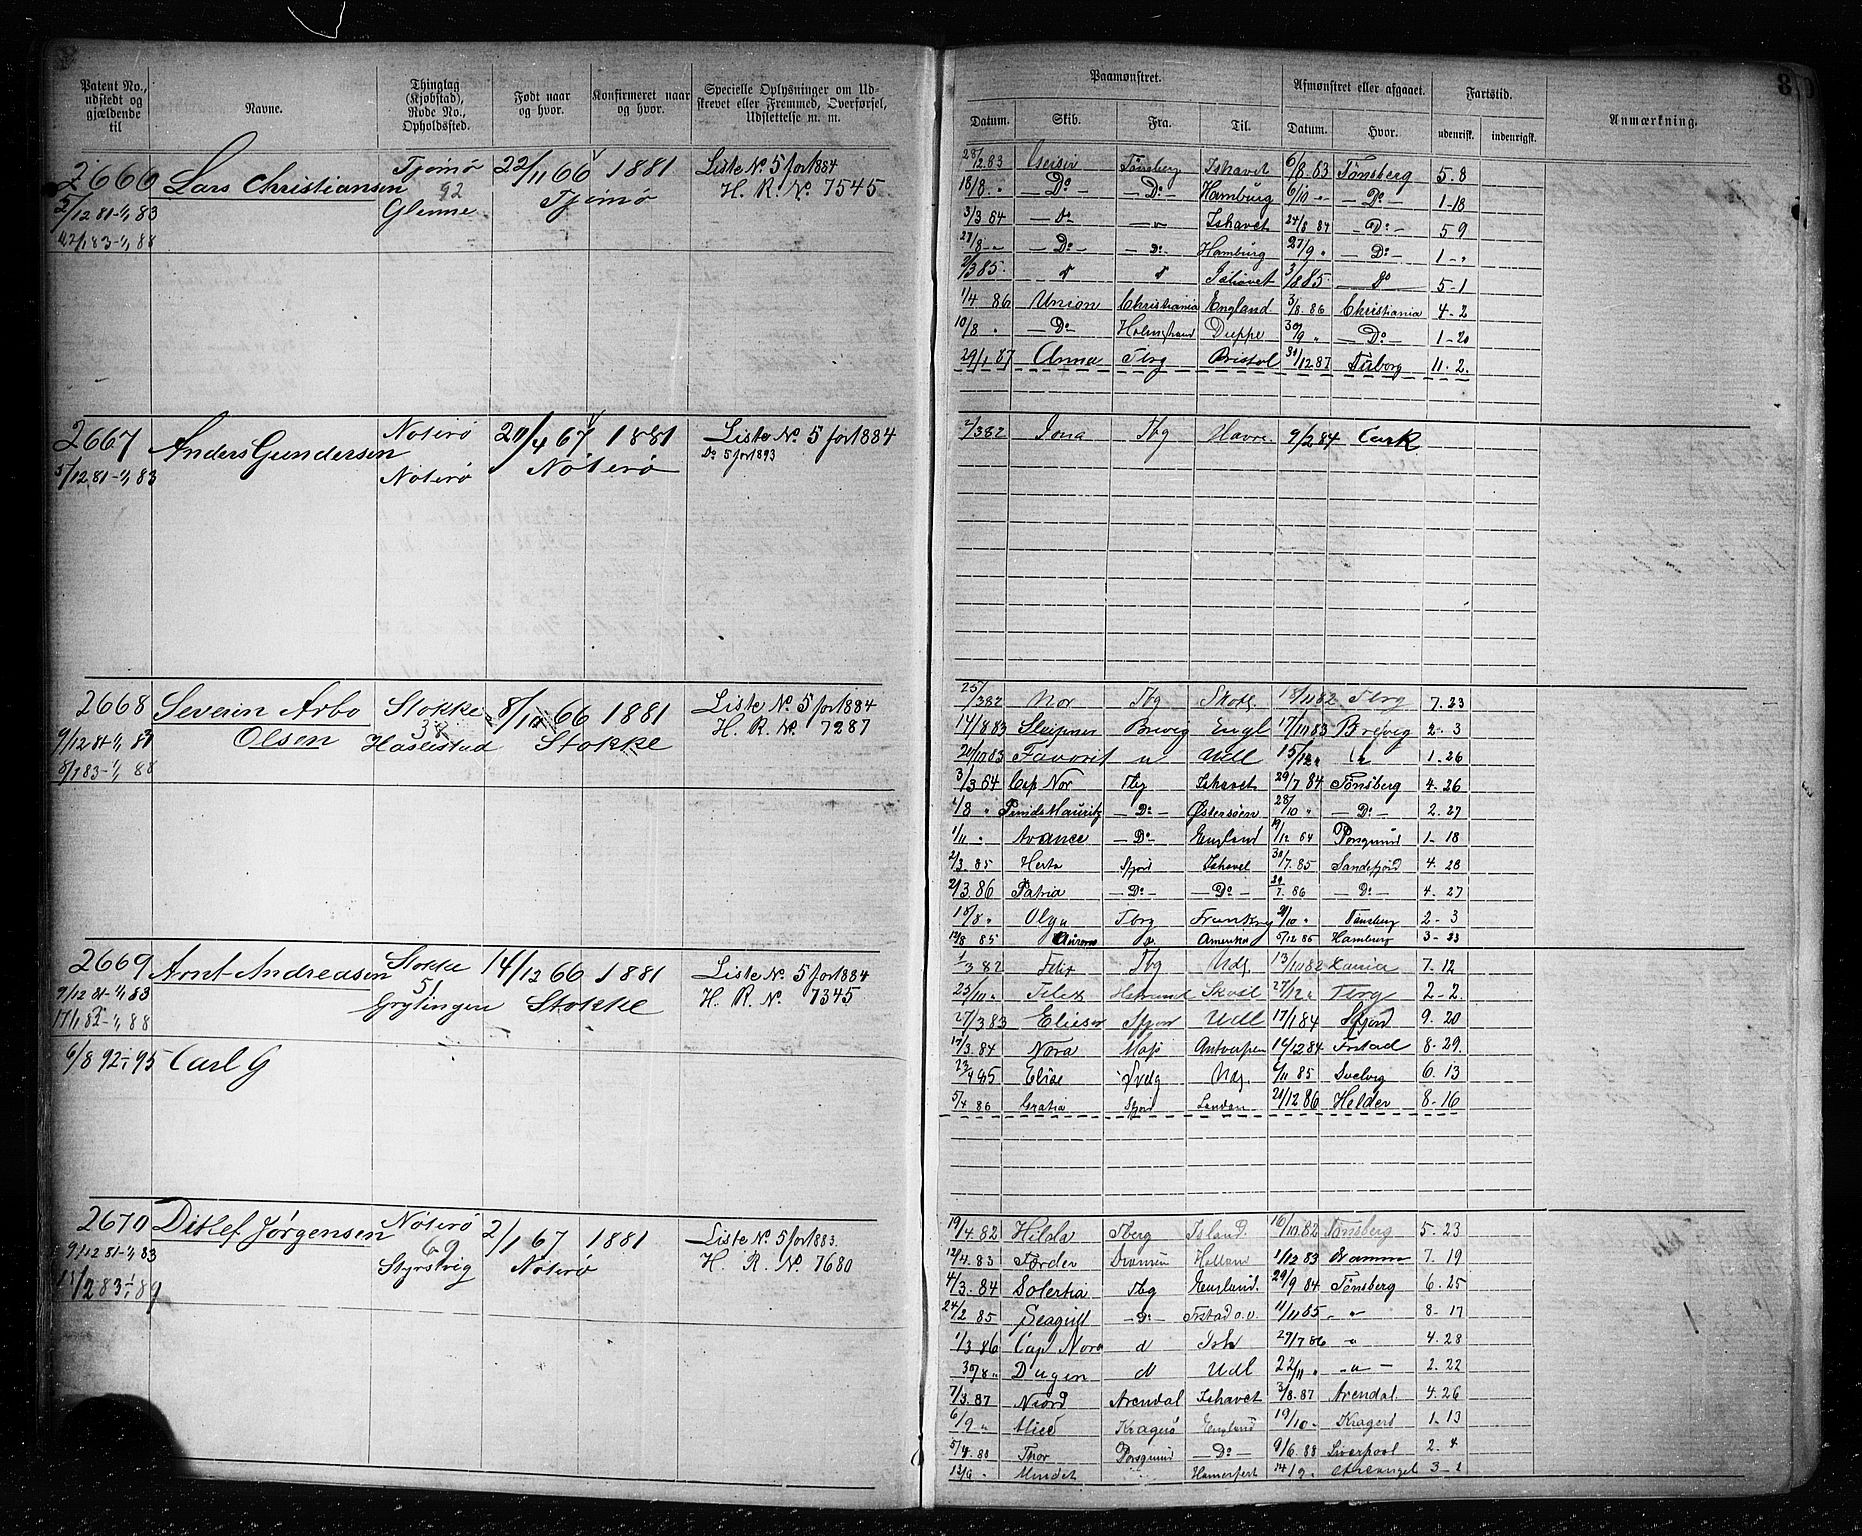 Patent No., udstedt og gjældende til
Navne.
Thinglag (Kjøbstad), Rode No., Opholdssted.
Født naar og hvor.
Konfirmeret naar og hvor.
Specielle Oplysninger om Udstrevet eller Fremmed, Overførsel, Udslettelse m. m.
2666 Lars Christiansen Tjømø 22/11 66 1881 Liste No 5 for 1884
92 Tjømø H. R. No. 7545
5/12 81-1/1 83 Glenne
83-1/1 88
2667 Anders Gundersen Nøterø 20/4 67 1881 Liste No 5 for 1884
Do 5 for 1893
5/12 81-1/1 83 Nøterø Nøterø
2668 Severin Arbo Stokke 8/10 66 1881 Liste No. 5 for 1884
Olsen 38 Haslestad Stokke H. R. No. 7287
9/12 81-1/1 83
83-1/1 88
2669 Arnt Andreasen Stokke 14/12 66 1881 Liste No 5 for 1884
51 Stokke H. R. No. 7345
9/12 81-1/1 83 Grytingen
6/8 92-95 Carl G
2670 Ditlef Jørgensen Nøterø 2/1 67 1881 Liste No 5 for 1883.
69 Nøterø H. R. No. 7680
9/12 81-1/1 83 Styrsvig
8
Paamønstret.
Afmønstret eller afgaaet.
Fartstid.
Anmærkning.
Datum. Skib. Fra. Til. Datum. Hvor. udenriks. indenrigsk.
28/2 83 Geiser Tønsberg Ishavet 6/8 83 Tønsberg 5.8
18/8 „ —Do— —Do— Hamburg 6/10 —Do— 1-18
3/3 84 —Do— Ishavet 24/8 84 —Do— 5 9
27/8 —Do— —Do— Hamburg 27/9 „ —Do— 1 - „
2/3 85 Ishavet 3/8 85 Do 5-1
1/4 86 Union Christiania England 3/8. 86 Christiania 4-2
10/8 „ —Do— Holmestrand Dieppe 30/9 „ —Do— 1-20
29/1 87 Anna Tbrg Bristol 30/12 87 11-2.
2/3 82 Iona Tbg Havre 9/2 84 Cark
25/3 82 Nor Tbg 18/11 82 Tbrg 7.23
14/8 83 Sleipner Brevig Engl 17/10 83 Brevig 2-3
20/10 83 Favorit Udl 15/12 1-26
3/3 84 Cap Nor Tbg Ishavet 29/7 84 Tønsberg 4-26
1/8 „ Prinds Mauritz —Do— Østersøen 28/10 „ —Do— 2-27
1/11 „ Avance —Do— England 19/12 84 Porsgrund 1-18
2/3 85 Herta Sfjord Ishavet 30/7. 85 Sandefjord 4. 28
2/3. 86 Patria —Do— —Do— 29/7. 86 —Do— 4-27
18/8 „ Olga Tbrg 21/10 „ Tønsberg 2-3
12/8 85 Amerika 5/12 85 Hamburg 3-23
1/3 82 Felix Tbg Udl. 13/10 82 7.12
23/10 „ Felix 27/12 Tbrg 2-2.
27/3 83 Elieser Sfjor Udl 17/1 84 Sfjord 9.20
17/3. 84 Nora Antverpen 14/12 84 Frstad 8-29.
23/4 85 Elise Udl. 6/11 85 Svelvig 6.13
5/4 86 Gratia Sfjord London 21/12 86 Helder 8-16
19/4. 82 Hilda Tberg Island 16/10 82 Tønsberg 5. 23
12/4. 83 Drammen 1/12 83 Dramm 7. 19
4/3. 84 Solertia Tbg England. 29/9 84 Tønsberg 6. 25
24/2 85 Seagull —Do— Frstad 11/11 85 8-17
1/3 86 Cap Nora Ish 29/7 86 4. 28
30/8 „ Dagen Udl 22/11 „ 2. 22
7/3. 87 Niord Arendal Ishavet 3/8. 87 Arendal 4. 26
6/9 „ Alice Kragerø England 19/10 Kragerø 1-13
5/4. 88 Thor Porsgrund —Do— 9/6. 88 Liverpool 2. 4
13/6 „ Hamerfest 14/9 Archangel 3-1